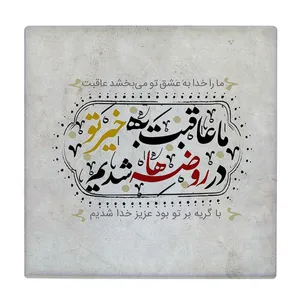 ما را خدا به عشق تو می‌بخشد عاقبت
ما عاقبت بخیر تو
در روضه‌ها شدیم
با گریه بر تو بود عزیز خدا شدیم